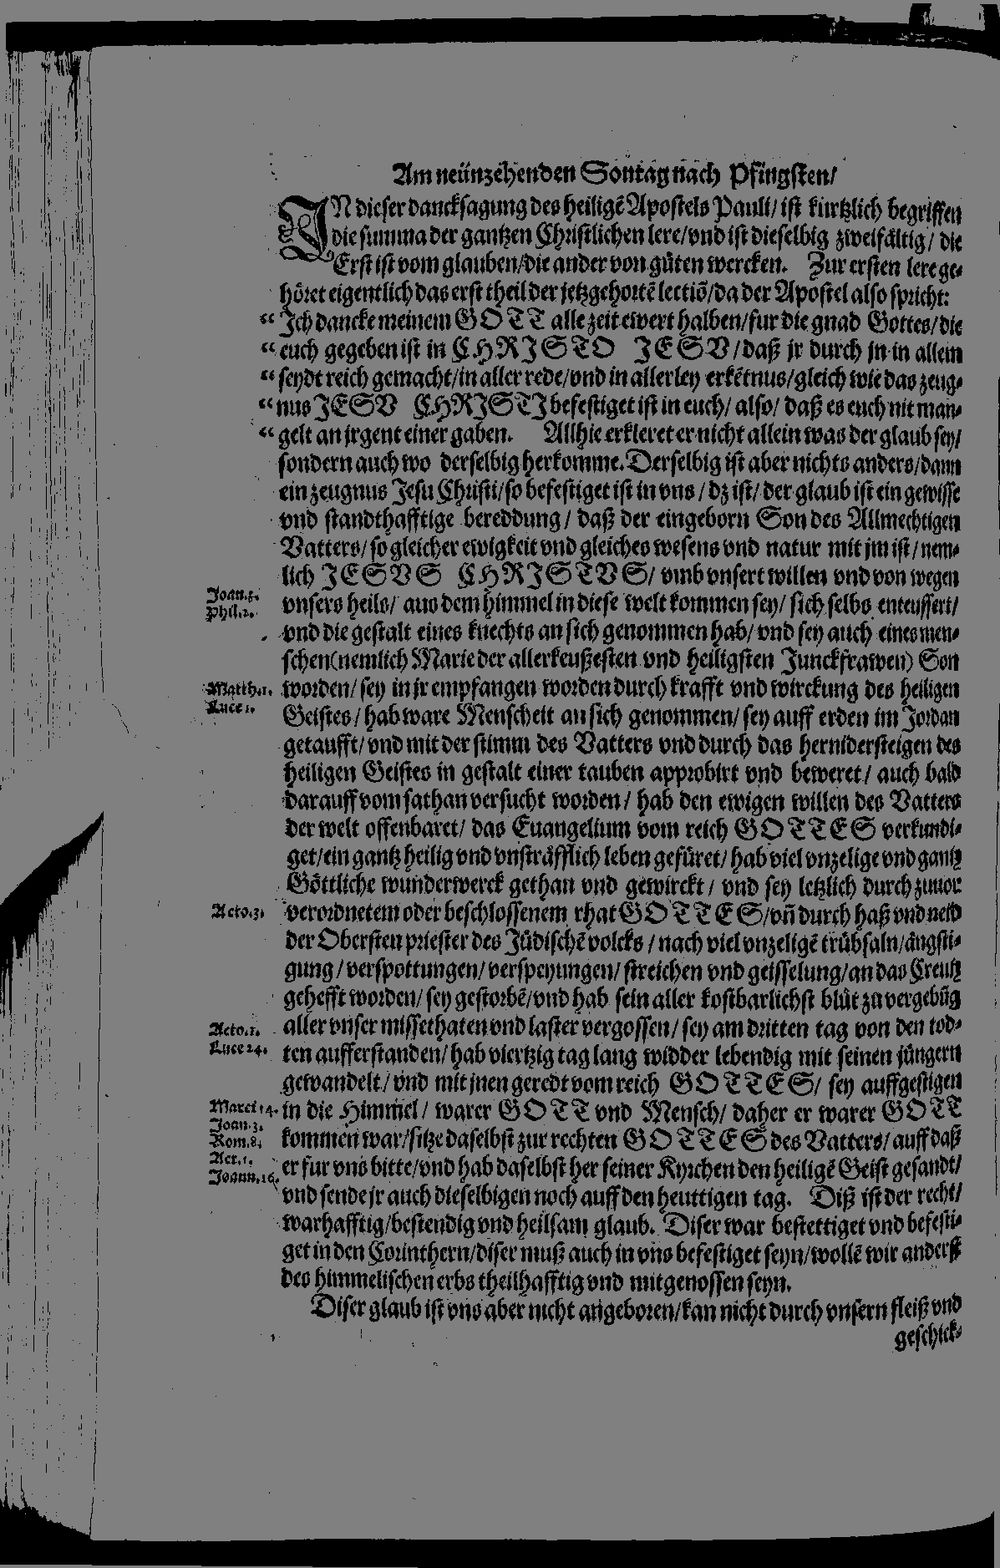 Am neünzehenden Sontag nach Pfingsten/
IN dieser dancksagung des heiligē Apostels Pauli/ ist kürtzlich begriffen
die summa der gantzen Christlichen lere/ vnd ist dieselbig zweifältig/ die
Erst ist vom glauben/ die ander von güten wercken. Zur ersten lere ge-
höret eigentlich das erst theil der jetzgehortē lectiō/ da der Apostel also spricht:
“ Ich dancke meinem GOTT alle zeit ewert halben/ fur die gnad Gottes/ die
“ euch gegeben ist in CHRISTO JESV/ daß jr durch jn in allem
“ seydt reich gemacht/ in aller rede/ vnd in allerley erkētnus/ gleich wie das zeug-
“ nus JESV CHRISTI befestiget ist in euch/ also/ daß es euch nit man-
“ gelt an jrgent einer gaben. Allhie erkleret er nicht allein was der glaub sey/
sondern auch wo derselbig herkomme. Derselbig ist aber nichts anders/ dann
ein zeugnus Jesu Christi/ so befestiget ist in vns/ dz ist/ der glaub ist ein gewisse
vnd standthafftige bereddung/ daß der eingeborn Son des Allmechtigen
Vatters/ so gleicher ewigkeit vnd gleiches wesens vnd natur mit jm ist/ nem-
lich JESVS CHRISTVS/ vmb vnsert willen vnd von wegen
Joan.1.
Phil.2.
vnsers heils/ aus dem himmel in diese welt kommen sey/ sich selbs enteussert/
vnd die gestalt eines knechts an sich genommen hab/ vnd sey auch eines men-
schen (nemlich Marie der allerkeußesten vnd heiligsten Junckfrawen) Son
Matth.1.
Luce 1.
worden/ sey in jr empfangen worden durch krafft vnd wirckung des heiligen
Geistes/ hab ware Menscheit an sich genommen/ sey auff erden im Jordan
getaufft/ vnd mit der stimm des Vatters vnd durch das hernidersteigen des
heiligen Geistes in gestalt einer tauben approbirt vnd beweret/ auch bald
darauff vom sathan versucht worden/ hab den ewigen willen des Vatters
der welt offenbaret/ das Euangelium vom reich GOTTES verkundi-
get/ ein gantz heilig vnd vnsträfflich leben gefüret/ hab viel vnzelige vnd gantz
Göttliche wunderwerck gethan vnd gewirckt/ vnd sey letzlich durch zuuor
Acto.3.
verordnetem oder beschlossenem rhat GOTTES/ vñ durch haß vnd neid
der Obersten priester des Jüdischē volcks/ nach viel vnzeligē trübsaln/ ängsti-
gung/ verspottungen/ verspeyungen/ streichen vnd geisselung/ an das Creutz
gehefft worden/ sey gestorbē/ vnd hab sein aller kostbarlichst blüt zu vergebūg
Acto.1.
Luce 24.
aller vnser missethaten vnd laster vergossen/ sey am dritten tag von den tod-
ten aufferstanden/ hab viertzig tag lang widder lebendig mit seinen jüngern
gewandelt/ vnd mit jnen geredt vom reich GOTTES/ sey auffgestigen
Marci 14.
Joan.3.
Rom.8.
Act.1.
Joann.16.
in die Himmel/ warer GOTT vnd Mensch/ daher er warer GOTT
kommen war/ sitze daselbst zur rechten GOTTES des Vatters/ auff daß
er fur vns bitte/ vnd hab daselbst her seiner Kyrchen den heiligē Geist gesandt/
vnd sende jr auch dieselbigen noch auff den heuttigen tag. Diß ist der recht/
warhafftig/ bestendig vnd heilsam glaub. Diser war bestettiget vnd befesti-
get in den Corinthern/ diser muß auch in vns befestiget seyn/ wollē wir anderst
des himmelischen erbs theilhafftig vnd mitgenossen seyn.
Diser glaub ist vns aber nicht angeboren/ kan nicht durch vnsern fleiß vnd
geschick-